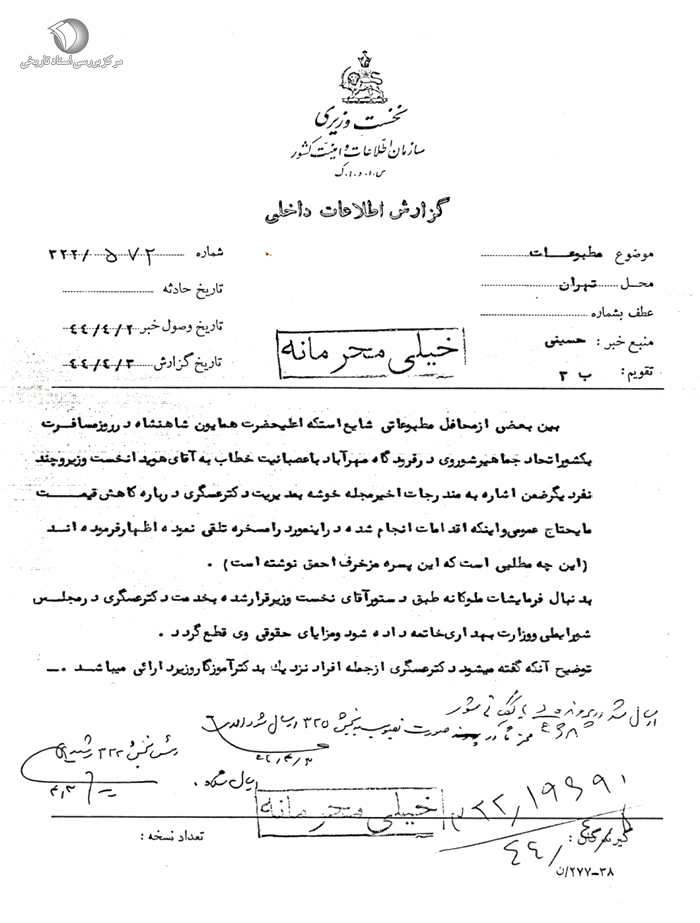 مرکز بررسی اسناد تاریخی
نخست وزیری
سازمان اطلاعات و امنیت کشور
س.ا.و.ا.ک
گزارش اطلاعات داخلی
موضوع مطبوعات
شماره ۳۲۲/۵۷۲
محل تهران
تاریخ حادثه
عطف بشماره
تاریخ وصول خبر ۴۴/۴/۲
منبع خبر: حسینی
خیلی محرمانه
تاریخ گزارش ۴۴/۴/۳
تقویم: ب ۳
بین بعضی از محافل مطبوعاتی شایع استکه اعلیحضرت همایون شاهنشاه در روز مسافرت
بکشور اتحاد جماهیر شوروی در فرودگاه مهرآباد با عصبانیت خطاب به آقای هویدا نخست وزیر و چند
نفر دیگر ضمن اشاره به مندرجات اخیر مجله خوشه بمدیریت دکتر عسگری درباره کاهش قیمت
مایحتاج عمومی و اینکه اقدامات انجام شده در اینمورد را مسخره تلقی نموده اظهار فرموده اند
(این چه مطلبی است که این پسره مزخرف احمق نوشته است) .
بدنبال فرمایشات ملوکانه طبق دستور آقای نخست وزیر قرار شده بخدمت دکتر عسگری در مجلس
شورایملی و وزارت بهداری خاتمه داده شود و مزایای حقوقی وی قطع گردد .
توضیح آنکه گفته میشود دکتر عسگری از جمله افراد نزدیك بدکتر آموزگار وزیر دارائی میباشد .ـ
در صورت تصویب بخش ۳۲۵ ارسال شود
رئیس بخش ۳۲۲
۴/۳
خیلی محرمانه
۳۲۲/۱۹۶۹۱
۴۴/
گیرندگان :
تعداد نسخه :
۳۸-۲۷۷/ن